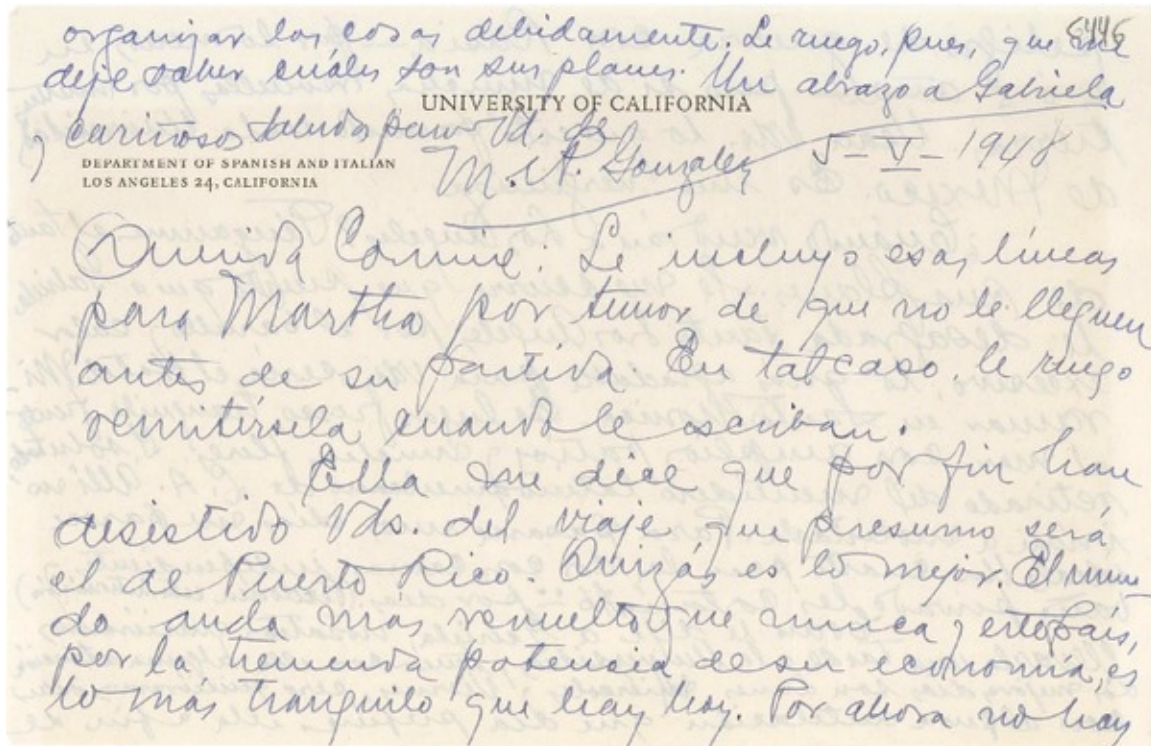 organizar las cosas debidamente. Le ruego, pues, que me
6446
deje saber cuáles son sus planes. Un abrazo a Gabriela
UNIVERSITY OF CALIFORNIA
y cariñosos saludos para Vd. de
DEPARTMENT OF SPANISH AND ITALIAN
LOS ANGELES 24, CALIFORNIA
M. A. Gonzalez
5-V-1948
Querida Connie: Le incluyo esas líneas
para Martha por temor de que no le lleguen
antes de su partida. En tal caso, le ruego
remitírsela cuando le escriban.
Ella me dice que por fin han
desistido Vds. del viaje, que presumo será
el de Puerto Rico. Quizás es lo mejor. El mun
do anda más revuelto que nunca y este país,
por la tremenda potencia de su economía, es
lo más tranquilo que hay hoy. Por ahora no hay